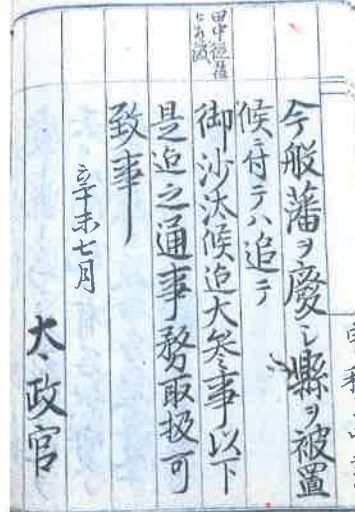 今般藩ヲ廃シ縣ヲ被置
候ニ付テハ追テ
御沙汰候迠大参事以下
是迠之通事務取扱可
致事
辛未七月
太政官